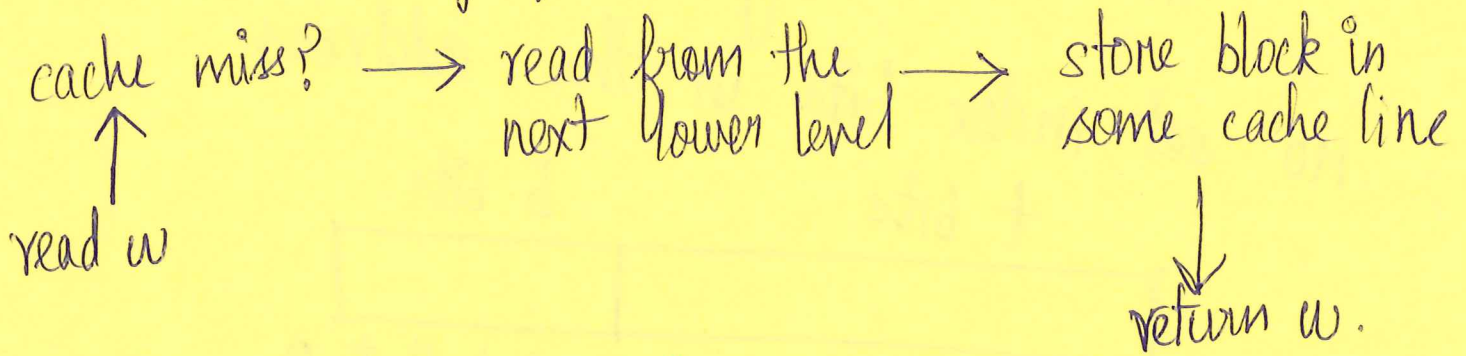 cache miss? → read from the next lower level → store block in some cache line
read w
return w.